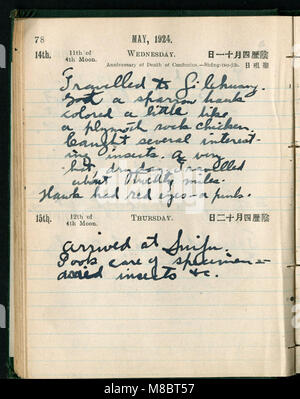 78 MAY, 1924.
14th. 11th of 4th Moon. WEDNESDAY. 日一十月四歷陰
Anniversary of Death of Confucius.—
Travelled to
Got a sparrow hawk
colored a little like
a plymoth rock chicken.
Caught several interest-
ing insects. A very
hot dry day. Travelled
about thirty miles.
Hawk had red eyes—a
15th. 12th of 4th Moon. THURSDAY. 日二十月四歷陰
arrived at Suifu.
Took care of specimens
insects &c.
alamy
Image ID: M8BT57
www.alamy.com